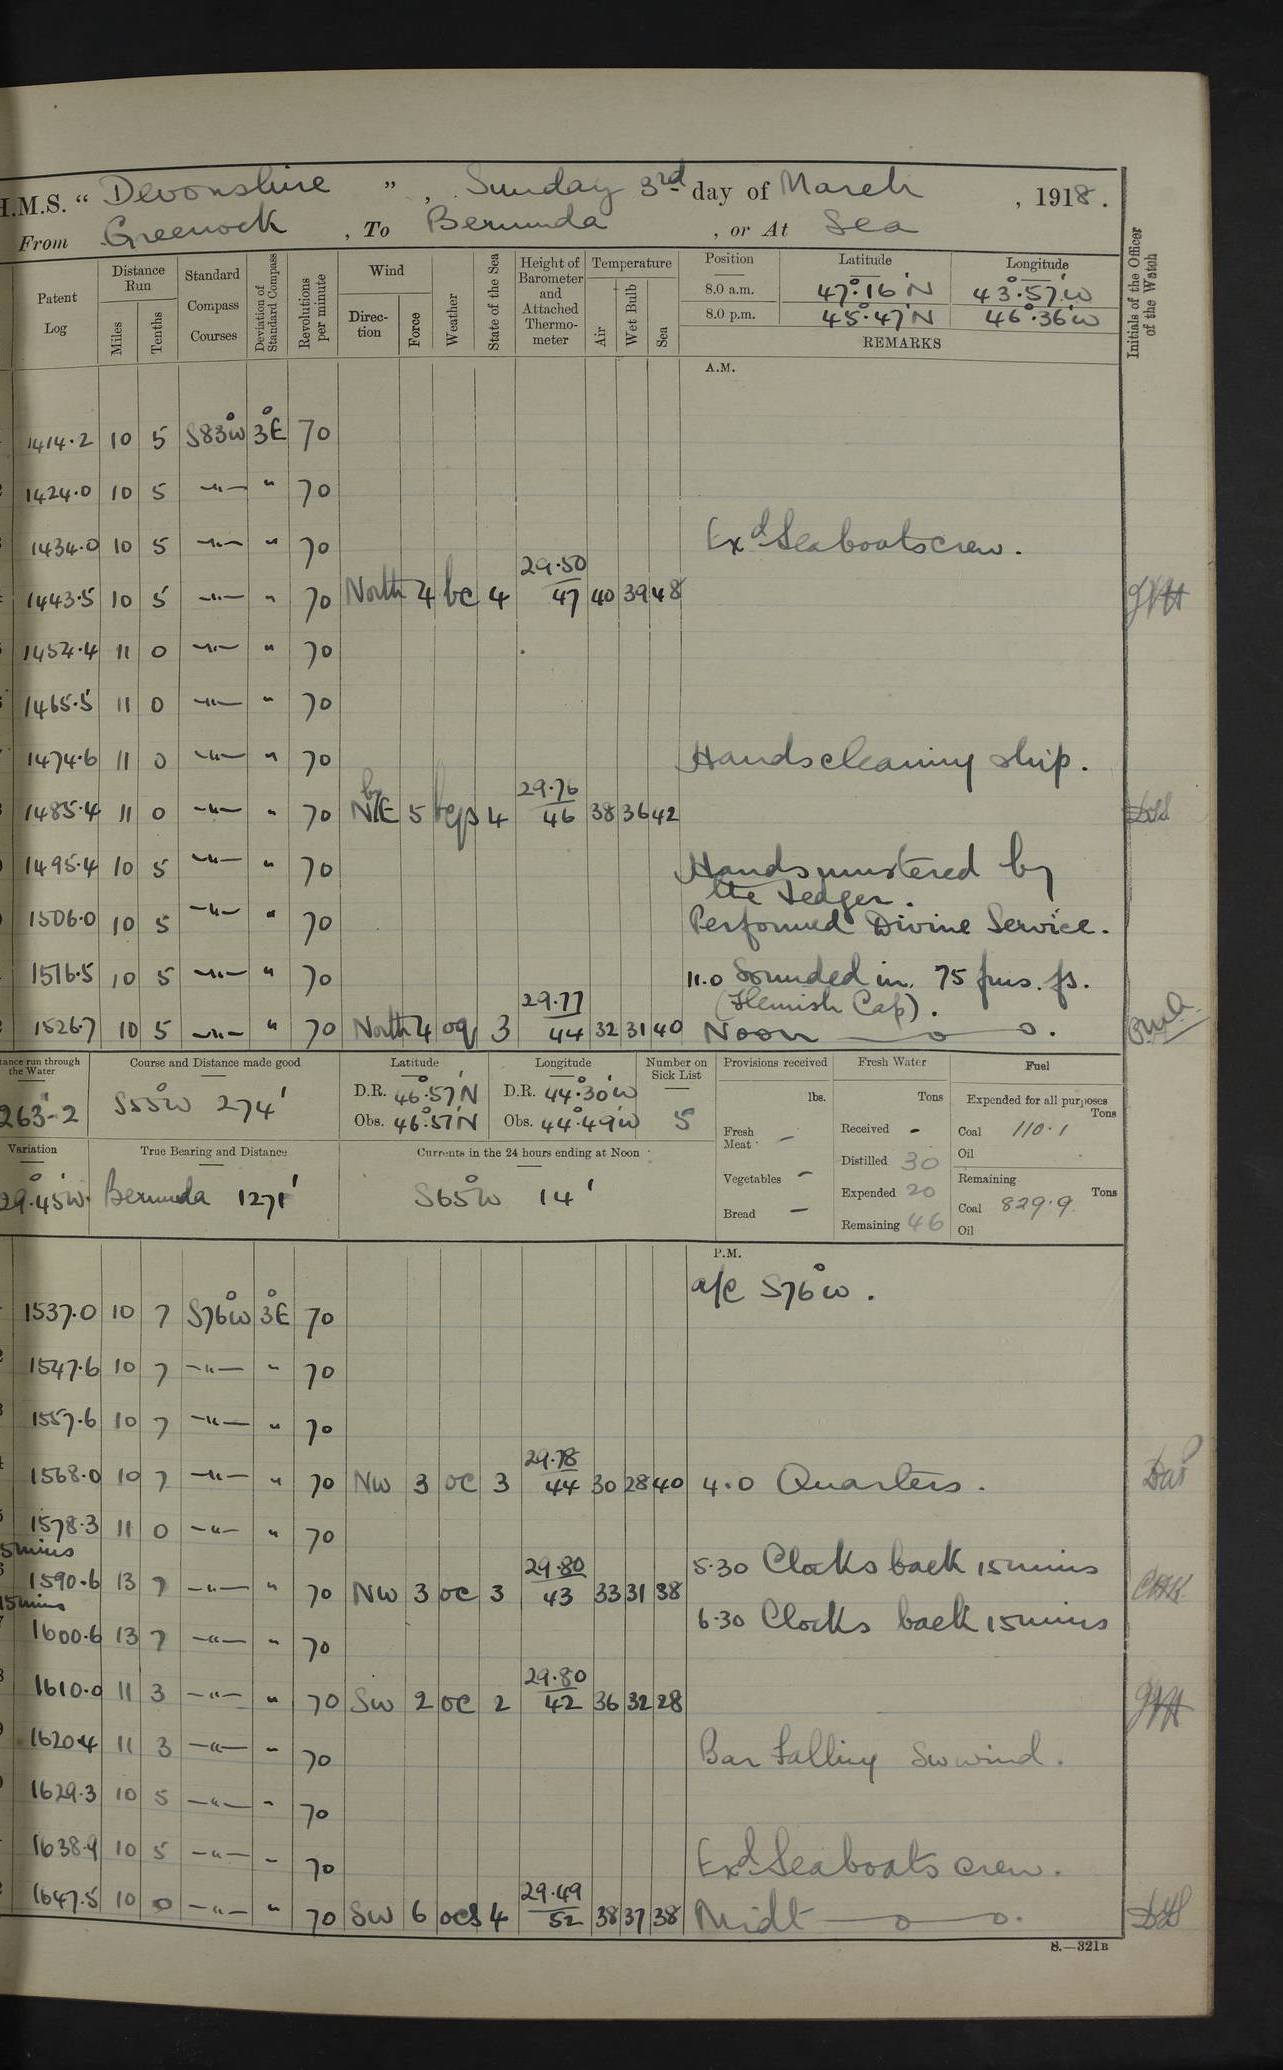 H.M.S. “ Devonshire ” , Sunday 3rd day of March , 1918 .
From Greenock , To Bermuda , or At Sea
Patent Log
Distance Run
Miles
Tenths
Standard Compass Courses
Deviation of Standard Compass
Revolutions per minute
Wind
Direction
Force
Weather
State of the Sea
Height of Barometer and Attached Thermometer
Temperature
Air
Wet Bulb
Sea
Position Latitude Longitude
8.0 a.m. 47°.16'N 43°.57'.W
8.0 p.m. 45°.47'N 46°.36'W
REMARKS
Initials of the Officer of the Watch
A.M.
1414.2 10 5 S83°W 3°E 70
1424.0 10 5 —"— " 70
1434.0 10 5 —"— " 70 Exd Seaboatscrew.
1443.5 10 5 —"— " 70 North 4 bc 4 29.50 47 40 39 48
1454.4 11 0 —"— " 70
1465.5 11 0 —"— " 70
1474.6 11 0 —"— " 70 Hands cleaning ship.
1485.4 11 0 —"— " 70 NbyE 5 bcqs 4 29.76 46 38 36 42
1495.4 10 5 —"— " 70 Hands mustered by
the Ledger.
1506.0 10 5 —"— " 70 Performed Divine Service.
1516.5 10 5 —"— " 70 11.0 Sounded in 75 fms. fs.
(Flemish Cap).
1526.7 10 5 —"— " 70 North 4 oq 3 29.77 44 32 31 40 Noon
tance run through the Water
263.2
Course and Distance made good
S55°W 274'
Latitude
D.R. 46°.57'N
Obs. 46°.51'N
Longitude
D.R. 44°.30'W
Obs. 44°.49'W
Number on Sick List
5
Provisions received
lbs.
Fresh Meat —
Vegetables —
Bread —
Fresh Water
Tons
Received -
Distilled 30
Expended 20
Remaining 46
Fuel
Expended for all purposes
Tons
Coal 110.1
Oil
Remaining
Tons
Coal 829.9
Oil
Variation
29°.45'W.
True Bearing and Distance
Bermuda 1271'
Currents in the 24 hours ending at Noon
S65°W 14'
P.M.
a/c S76°W.
1537.0 10 7 S76°W 3°E 70
1547.6 10 7 —"— " 70
1557.6 10 7 —"— " 70
1568.0 10 7 —"— " 70 NW 3 oc 3 29.78 44 30 28 40 4.0 Quarters.
1578.3 11 0 —"— " 70
5mins
5.30 Clocks back 15mins
1590.6 13 7 —"— " 70 NW 3 oc 3 29.80 43 33 31 38
15mins
6.30 Clocks back 15mins
1600.6 13 7 —"— " 70
1610.0 11 3 —"— " 70 SW 2 oc 2 29.80 42 36 32 28
1620.4 11 3 —"— " 70 Bar falling SW wind.
1629.3 10 5 —"— " 70
1638.9 10 5 —"— " 70 Exd Seaboats crew.
1647.5 10 0 —"— " 70 SW 6 ocs 4 29.49 52 38 37 38 Midt
S.—321B